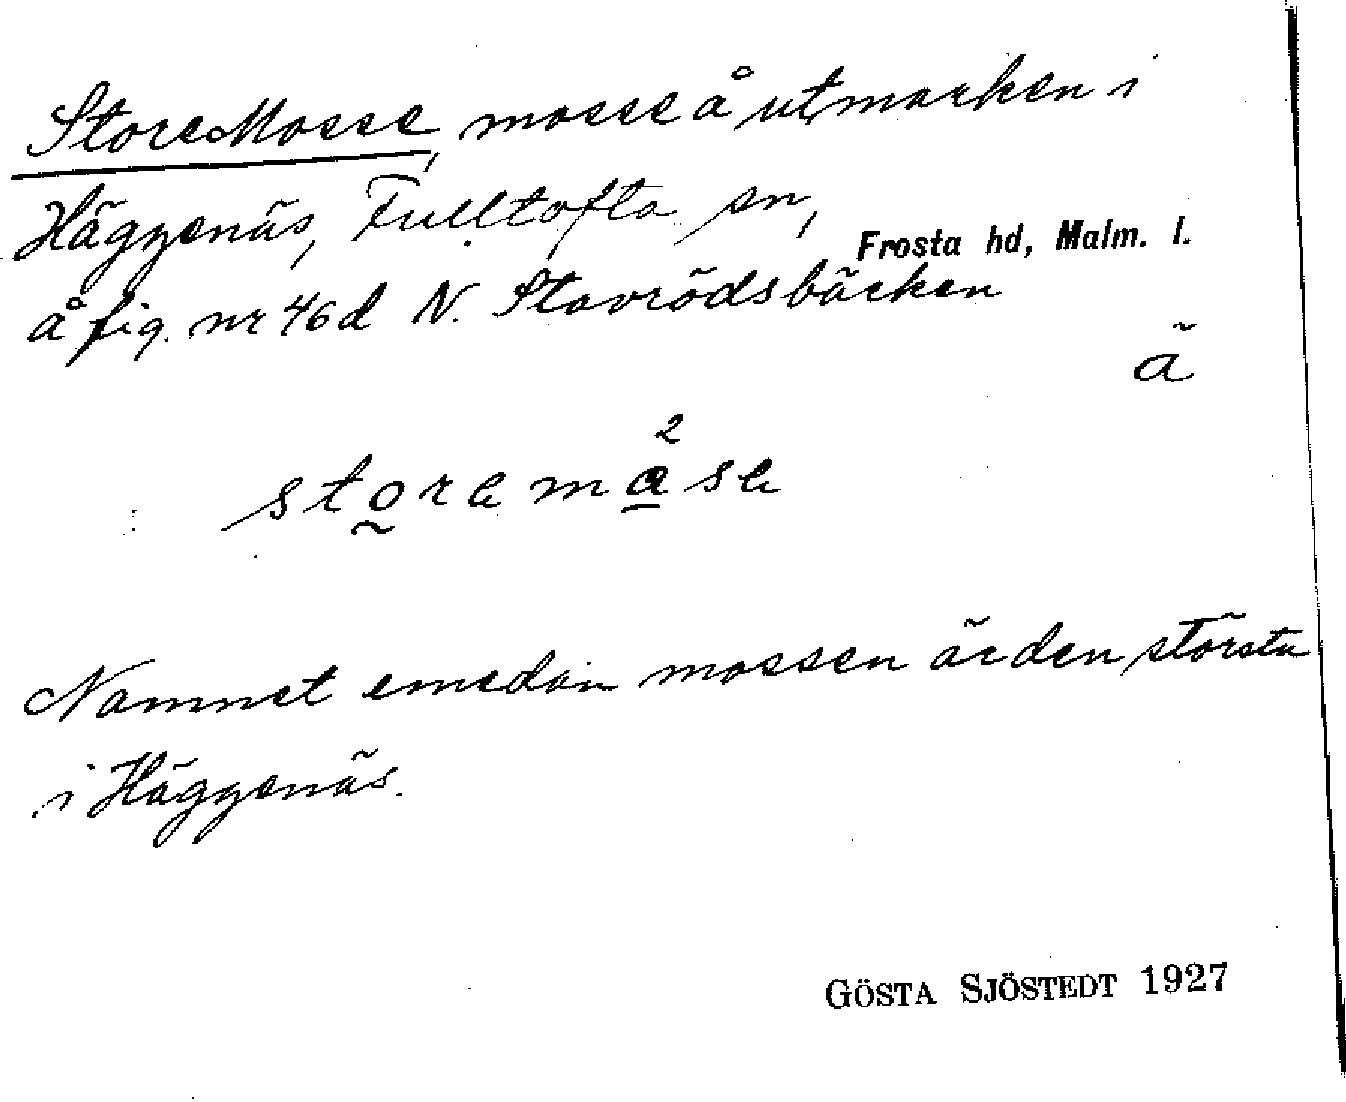 Store Mosse, mosse å utmarken i
Häggenäs, Fulltofta sn, Frosta hd, Malm. l.
å fig. nr 46d N. Stavrödsbäcken
ä
2
storamåsa
Namnet emedan mossen är den största
i Häggenäs.
GÖSTA SJÖSTEDT 1927